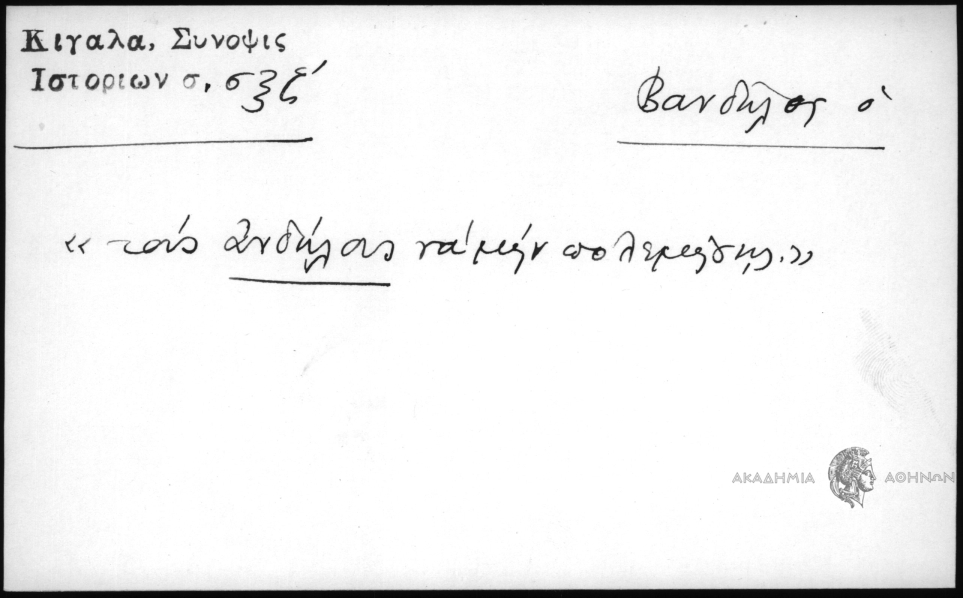 Κιγαλα, Συνοψις
Ιστοριων σ, σξζ́
Βανδήλος ὁ
« τοὺς Ἀνδήλους νά μήν πολεμήσης. »
ΑΚΑΔΗΜΙΑ ΑΘΗΝΩΝ